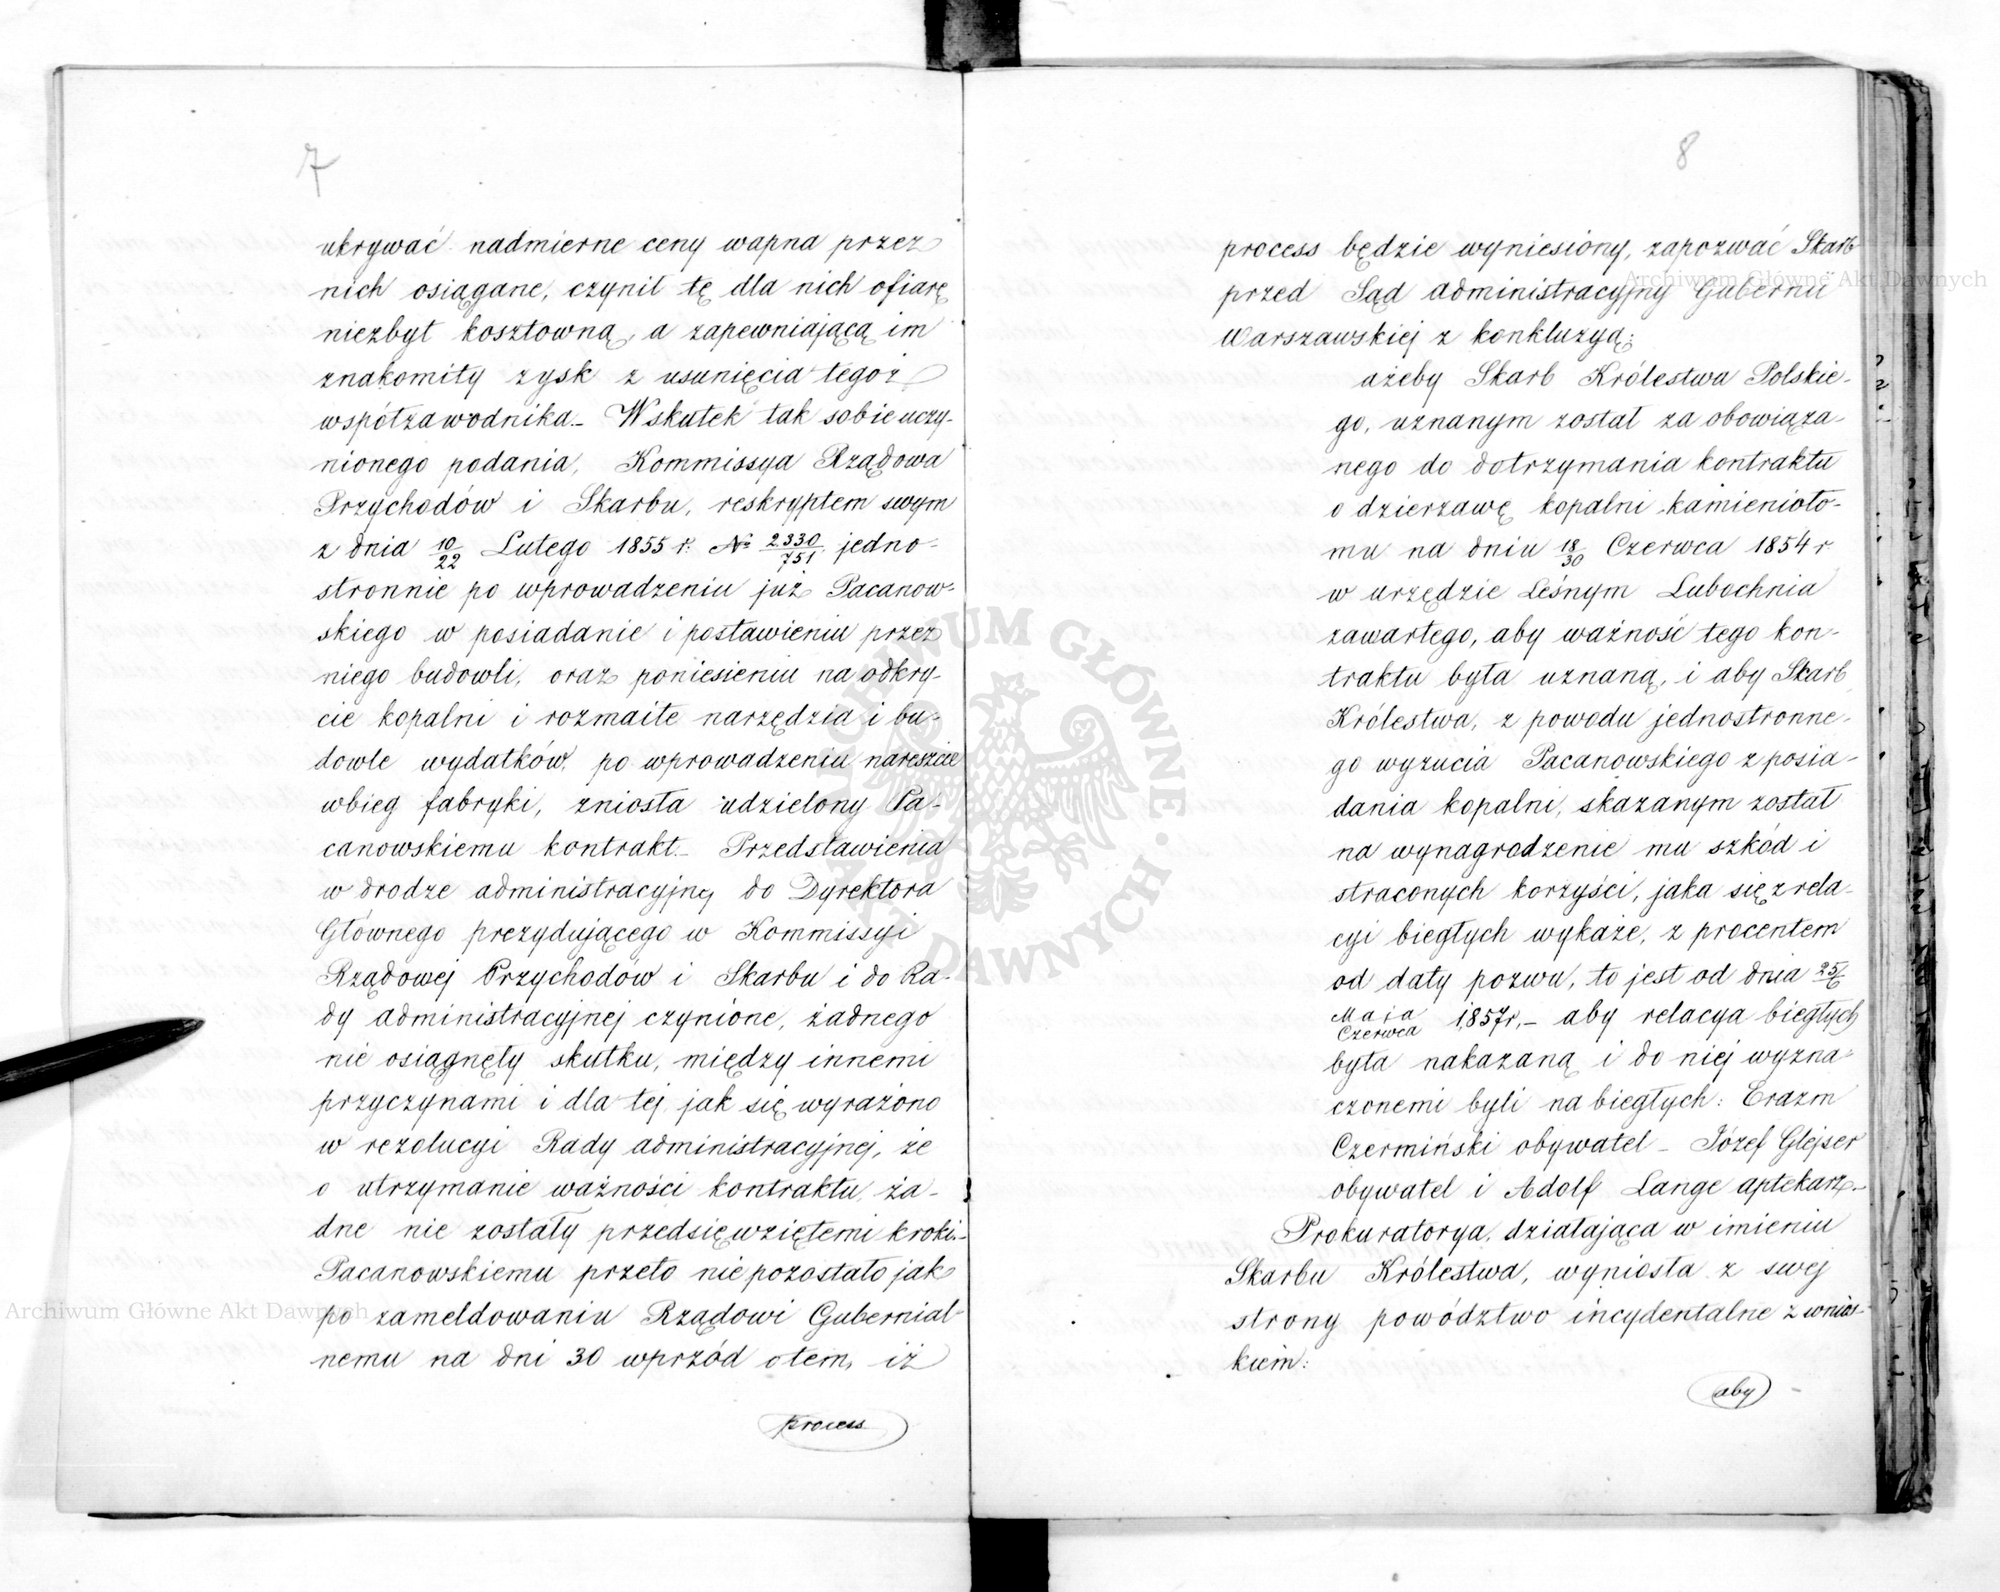 7
ukrywać nadmierne ceny wapna przez
nich osiągane, czynił tę dla nich ofiarę
niezbyt kosztowną, a zapewniającą im
znakomity zysk z usunięcia tegoż
współzawodnika.- Wskutek tak sobie uczy-
nionego podania, Kommissya Rządowa
Przychodów i Skarbu, reskryptem swym
z dnia 10/22 Lutego 1855 r. № 2330/751 jedno-
stronnie po wprowadzeniu już Pacanow-
skiego w posiadanie i postawieniu przez
niego budowli, oraz poniesieniu na odkry-
cie kopalni i rozmaite narzędzia i bu-
dowle wydatków, po wprowadzeniu nareszcie
wbieg fabryki, zniosła udzielony Pa-
canowskiemu kontrakt.- Przedstawienia
w drodze administracyjnej do Dyrektora
Głównego prezydującego w Kommissyi
Rządowej Przychodów i Skarbu i do Ra-
dy administracyjnej czynione, żadnego
nie osiągnęły skutku, między innemi
przyczynami i dla tej, jak się wyrażono
w rezolucyi Rady administracyjnej, że
o utrzymanie ważności kontraktu ża-
dne nie zostały przedsięwziętemi kroki.-
Pacanowskiemu przeto nie pozostało jak
po zameldowaniu Rządowi Gubernial-
nemu na dni 30 wprzód o tem, iż
process
8
process będzie wyniesiony, zapozwać Skarb
przed Sąd administracyjny Gubernii
Warszawskiej z konkluzyą:
ażeby Skarb Królestwa Polskie-
go, uznanym został za obowiąza-
nego do dotrzymania kontraktu
o dzierżawę kopalni kamienioło-
mu na dniu 18/30 Czerwca 1854 r
w urzędzie Leśnym Lubochnia
zawartego, aby ważność tego kon-
traktu była uznaną, i aby Skarb
Królestwa, z powodu jednostronne-
go wyzucia Pacanowskiego z posia-
dania kopalni, skazanym został
na wynagrodzenie mu szkód i
straconych korzyści, jaka się z rela-
cyi biegłych wykaże, z procentem
od daty pozwu, to jest od dnia 25/6
Maja/Czerwca 1857r.- aby relacya biegłych
była nakazaną i do niej wyzna-
czonemi byli na biegłych: Erazm
Czermiński obywatel - Józef Glejser
obywatel i Adolf Lange aptekarz.-
Prokuratorya, działająca w imieniu
Skarbu Królestwa, wyniosła z swej
strony powództwo incydentalne z wnios-
kiem:
aby
Archiwum Główne Akt Dawnych
Archiwum Główne Akt Dawnych
ARCHIWUM GŁÓWNE AKT DAWNYCH